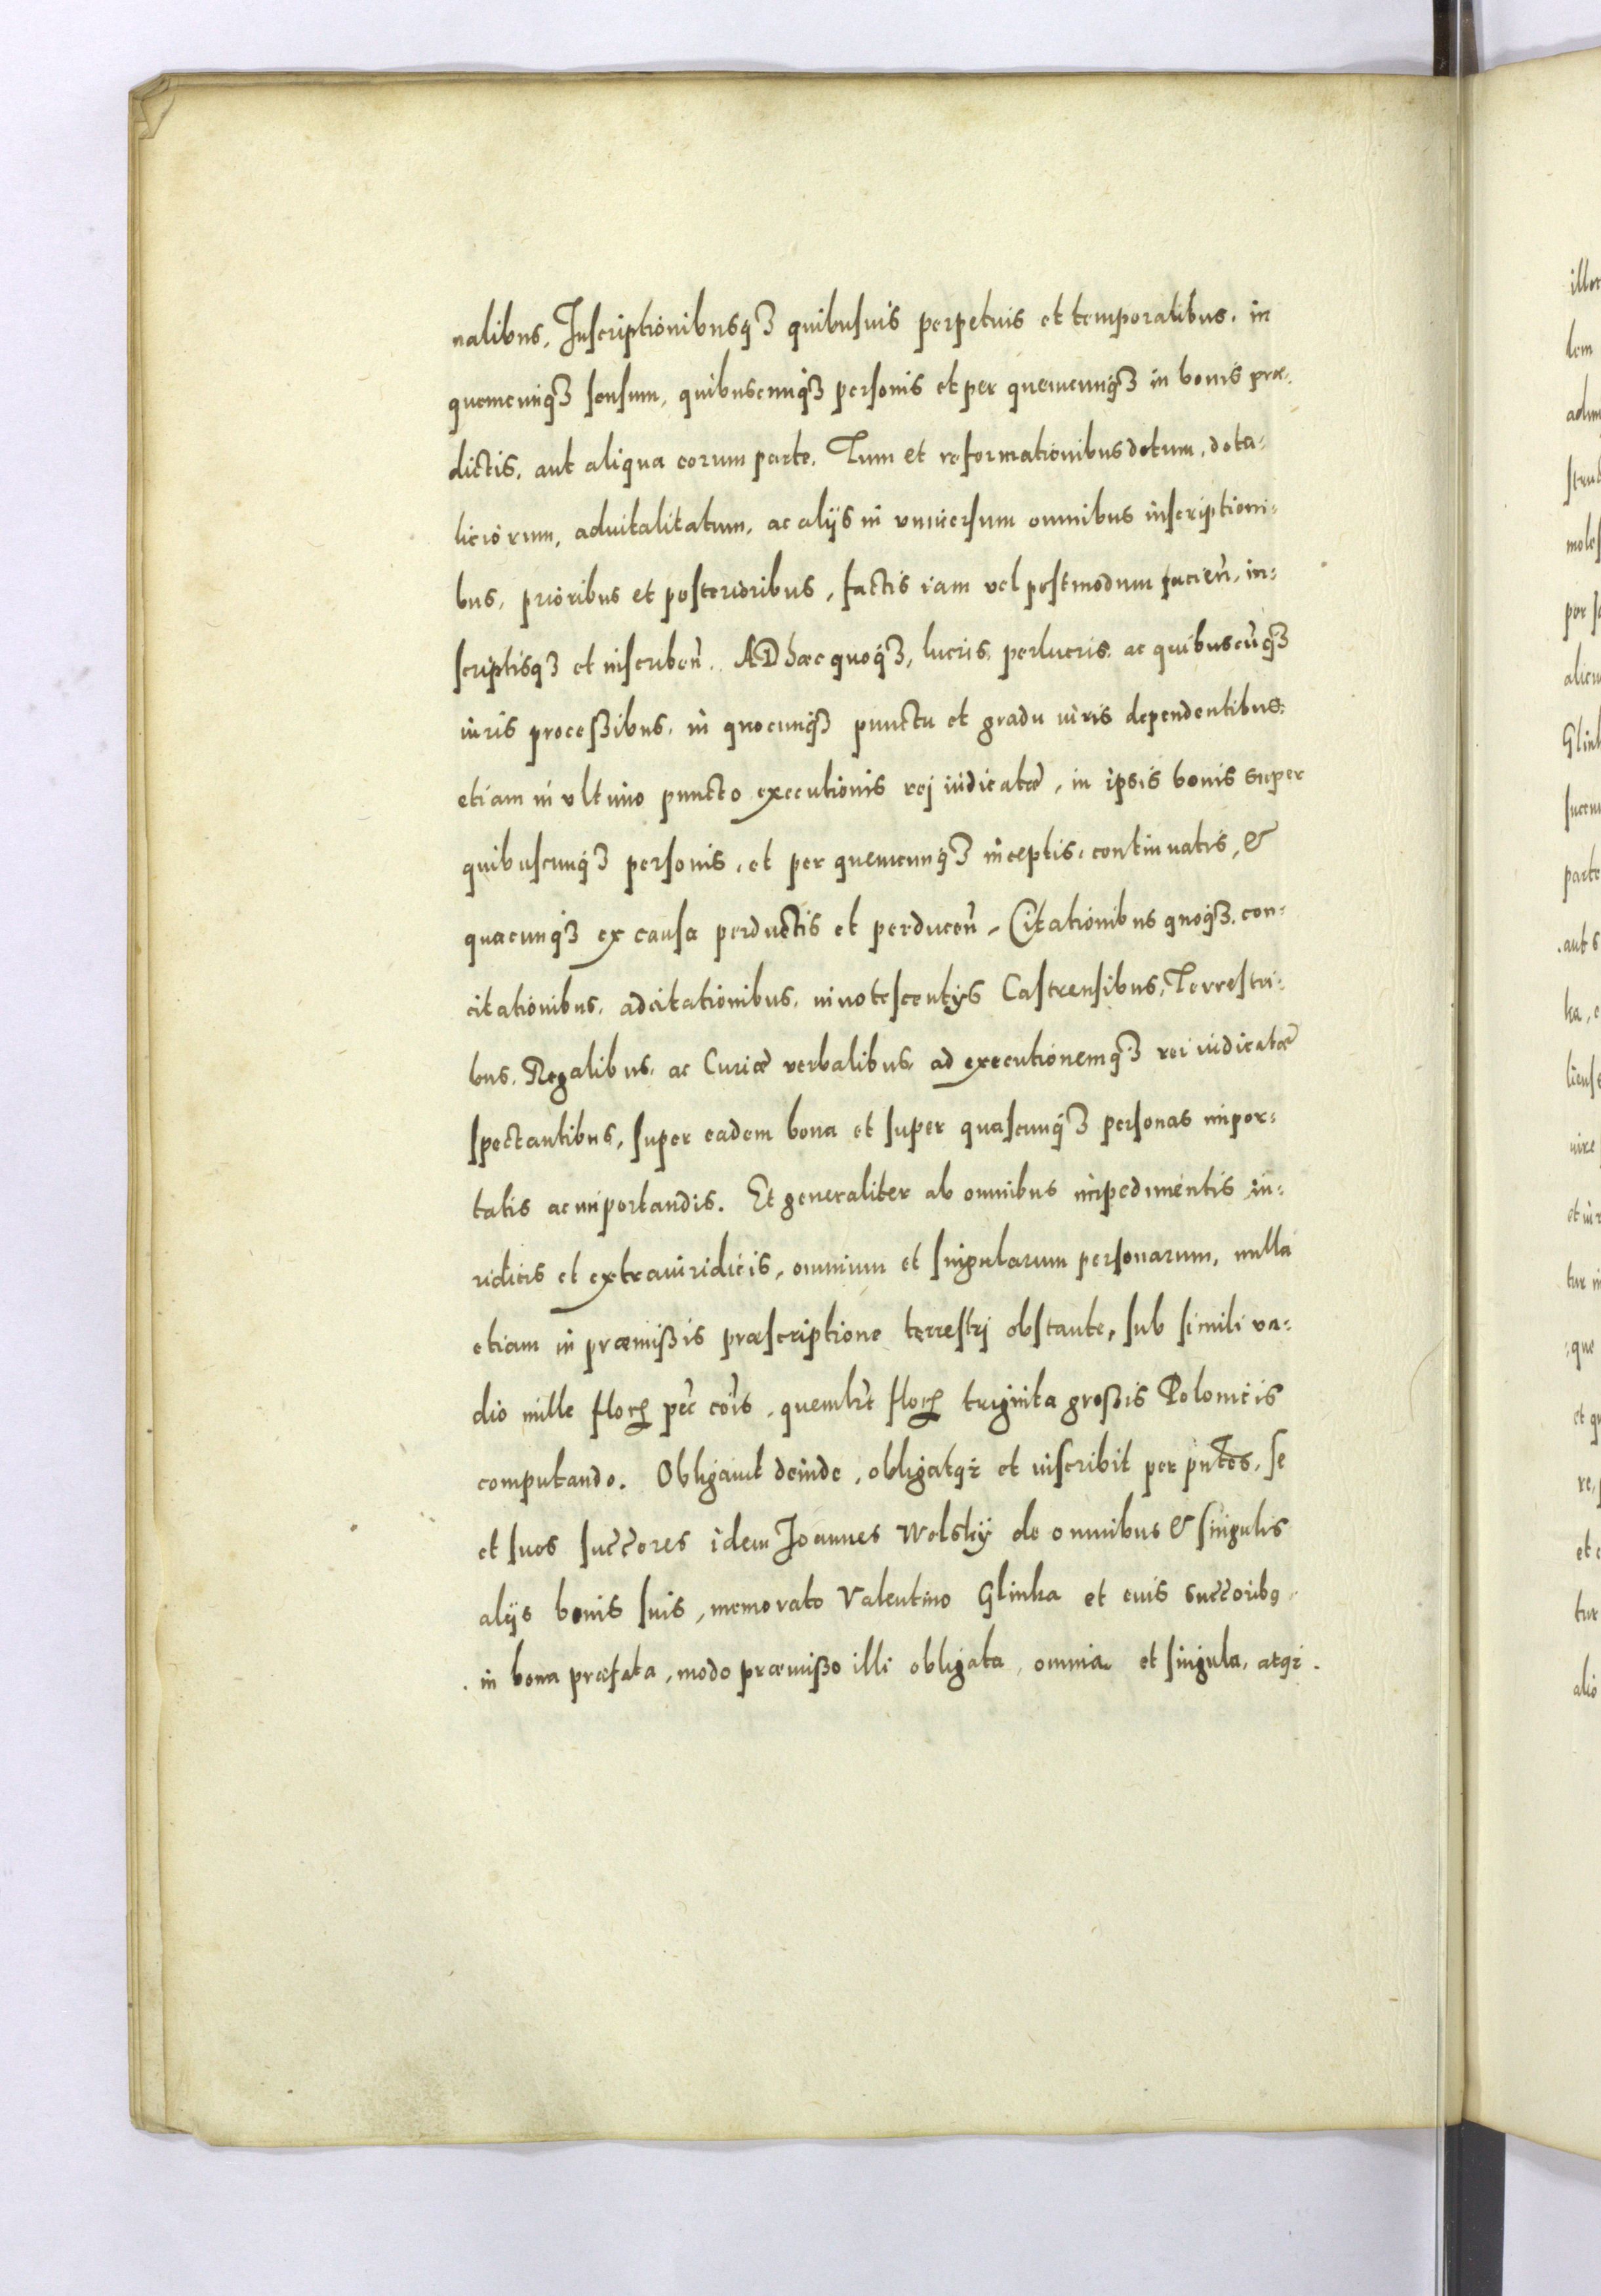 nalibus, Inscriptionibusq3 quibusuis perpetuis et temporalibus, in
quemcunq3 sensum, quibuscunq3 personis et per quemcunq3 in bonis præ-
dictis, aut aliqua eorum parte, Tum et reformationibus dotum, dota-
liciorum, aduitalitatum, ac alijs in vniuersum omnibus inscriptioni-
bus, prioribus et posterioribus, factis iam vel postmodum facieñ, in-
scriptisq3 et inscribeñ. AD hæc quoq3, lucris, perlucris, ac quibuscūq3
iuris proceßibus, in quocunq3 punctu et gradu iuris dependentibus:
etiam in vltimo puncto executionis rej iudicatæ, in ipsis bonis super
quibuscunq3 personis, et per quemcunq3 inceptis, continuatis, &
quacunq3 ex causa perductis et perduceñ, Citationibus quoq3, con-
citationibus, adcitationibus, innotescentijs Castrensibus, Terrestri-
bus, Regalibus, ac Curiæ verbalibus, ad executionemq3 rei iudicatæ
spectantibus, super eadem bona et super quascunq3 personas impor-
tatis ac importandis. Et generaliter ab omnibus impedimentis iu-
ridicis et extraiuridicis, omnium et singularum personarum, nulla
etiam in præmißis præscriptione terrestrj obstante, sub simili va-
dio mille floꝝ peč cōis, quemlꝫt floꝝ triginta großis Polonicis
computando. Obligauit deinde, obligatqꝫ et inscribit per pn̄tes, se
et suos succ̄ores idem Joannes Wolskÿ de omnibus & singulis
alijs bonis suis, memorato Valentino Glinka et euis succ̄oribꝯ,
in bona præfata, modo præmißo illi obligata, omnia et singula, atqꝫ